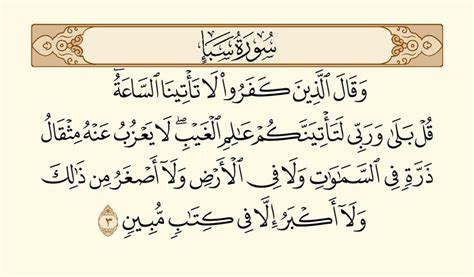 سُورَةُ سَبَإٍ
وَقَالَ ٱلَّذِينَ كَفَرُوا۟ لَا تَأْتِينَا ٱلسَّاعَةُ ۖ
قُلْ بَلَىٰ وَرَبِّى لَتَأْتِيَنَّكُمْ عَـٰلِمِ ٱلْغَيْبِ ۖ لَا يَعْزُبُ عَنْهُ مِثْقَالُ
ذَرَّةٍ فِى ٱلسَّمَـٰوَٰتِ وَلَا فِى ٱلْأَرْضِ وَلَآ أَصْغَرُ مِن ذَٰلِكَ
وَلَآ أَكْبَرُ إِلَّا فِى كِتَـٰبٍ مُّبِينٍ ٣